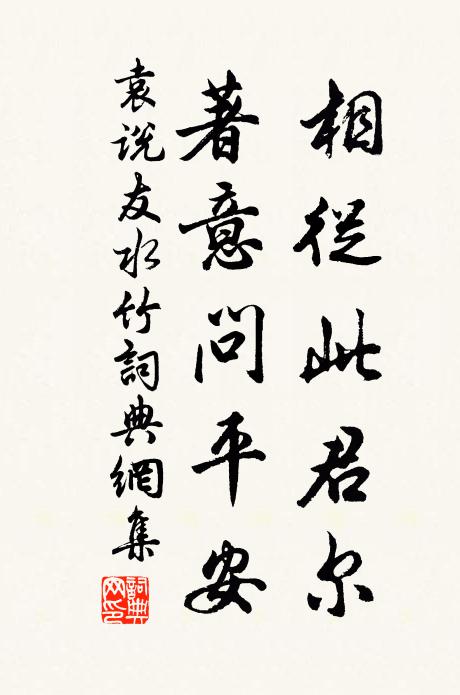 相從此君尔
著意問平安
袁説友水竹詞典網集
詞典网印